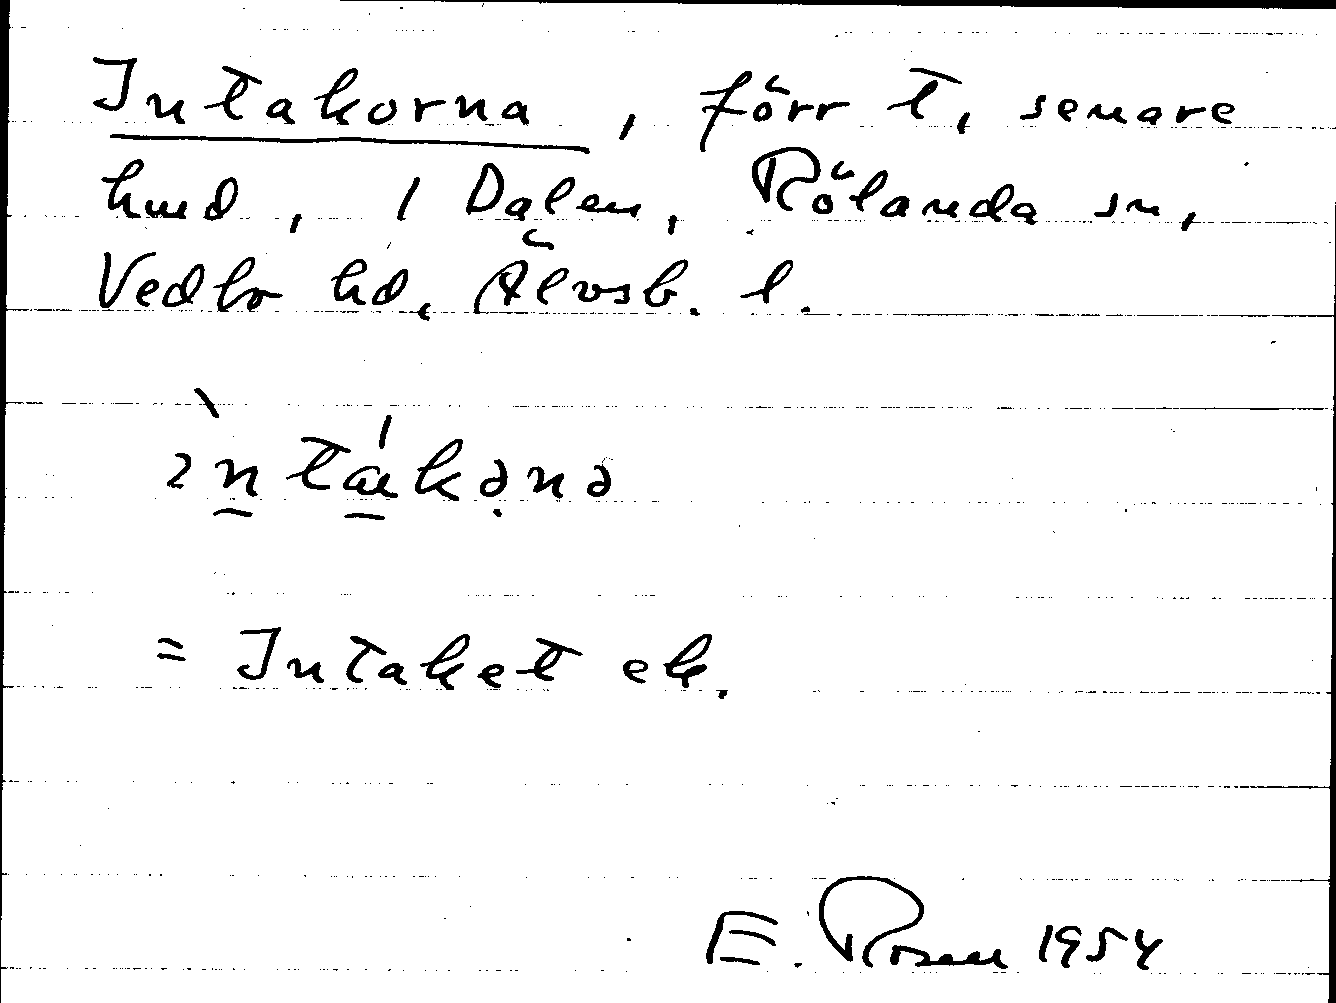 Intakorna, förr t, senare
hmd, 1 Dalen, Rölanda sn,
Vedbo hd, Älvsb. l.
ìntákənə
= Intaket ek.
E. Rosen 1954